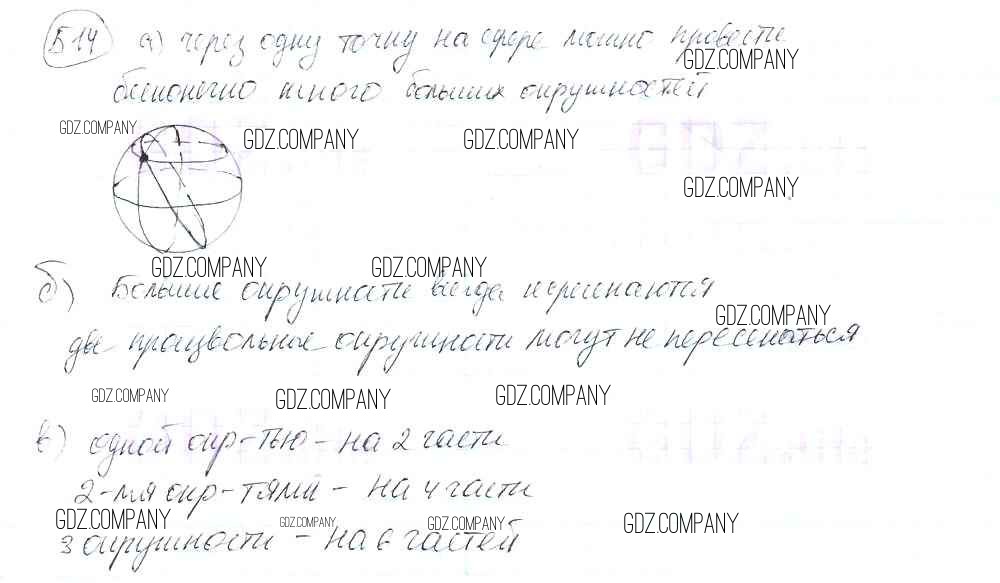 Б14 а) через одну точку на сфере можно провести
GDZ.COMPANY
бесконечно много больших окружностей
GDZ.COMPANY GDZ.COMPANY GDZ.COMPANY
GDZ.COMPANY
GDZ.COMPANY GDZ.COMPANY
б) Большие окружности всегда пересекаются
GDZ.COMPANY
две произвольные окружности могут не пересекаться
GDZ.COMPANY GDZ.COMPANY GDZ.COMPANY
в) одной окр-тью - на 2 части
2-мя окр-тями - на 4 части
GDZ.COMPANY GDZ.COMPANY GDZ.COMPANY GDZ.COMPANY
3 окружности - на 6 частей